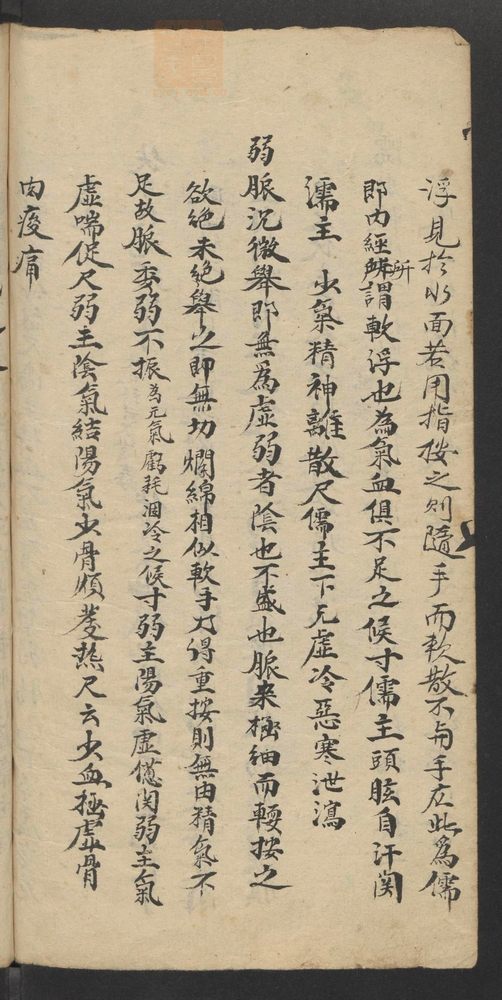 浮見於水面若用指按之則隨手而軟散不與手应此為儒
即内經所謂軟浮也為氣血俱不足之候寸儒主頭眩自汗関
濡主 少氣精神離散尺儒主下元虛冷惡寒泄瀉
弱脈沉微舉即無為虛弱者陰也不盛也脈来極細而輭按之
欲絶未絶舉之即無切爛綿相似軟手乃得重按則無由精氣不
足故脈委弱不振為元氣虧耗涸冷之候寸弱主陽氣虛憊関弱主氣
虛喘促尺弱主陰氣結陽氣少骨煩發热尺云少血極虛骨
肉痠痛